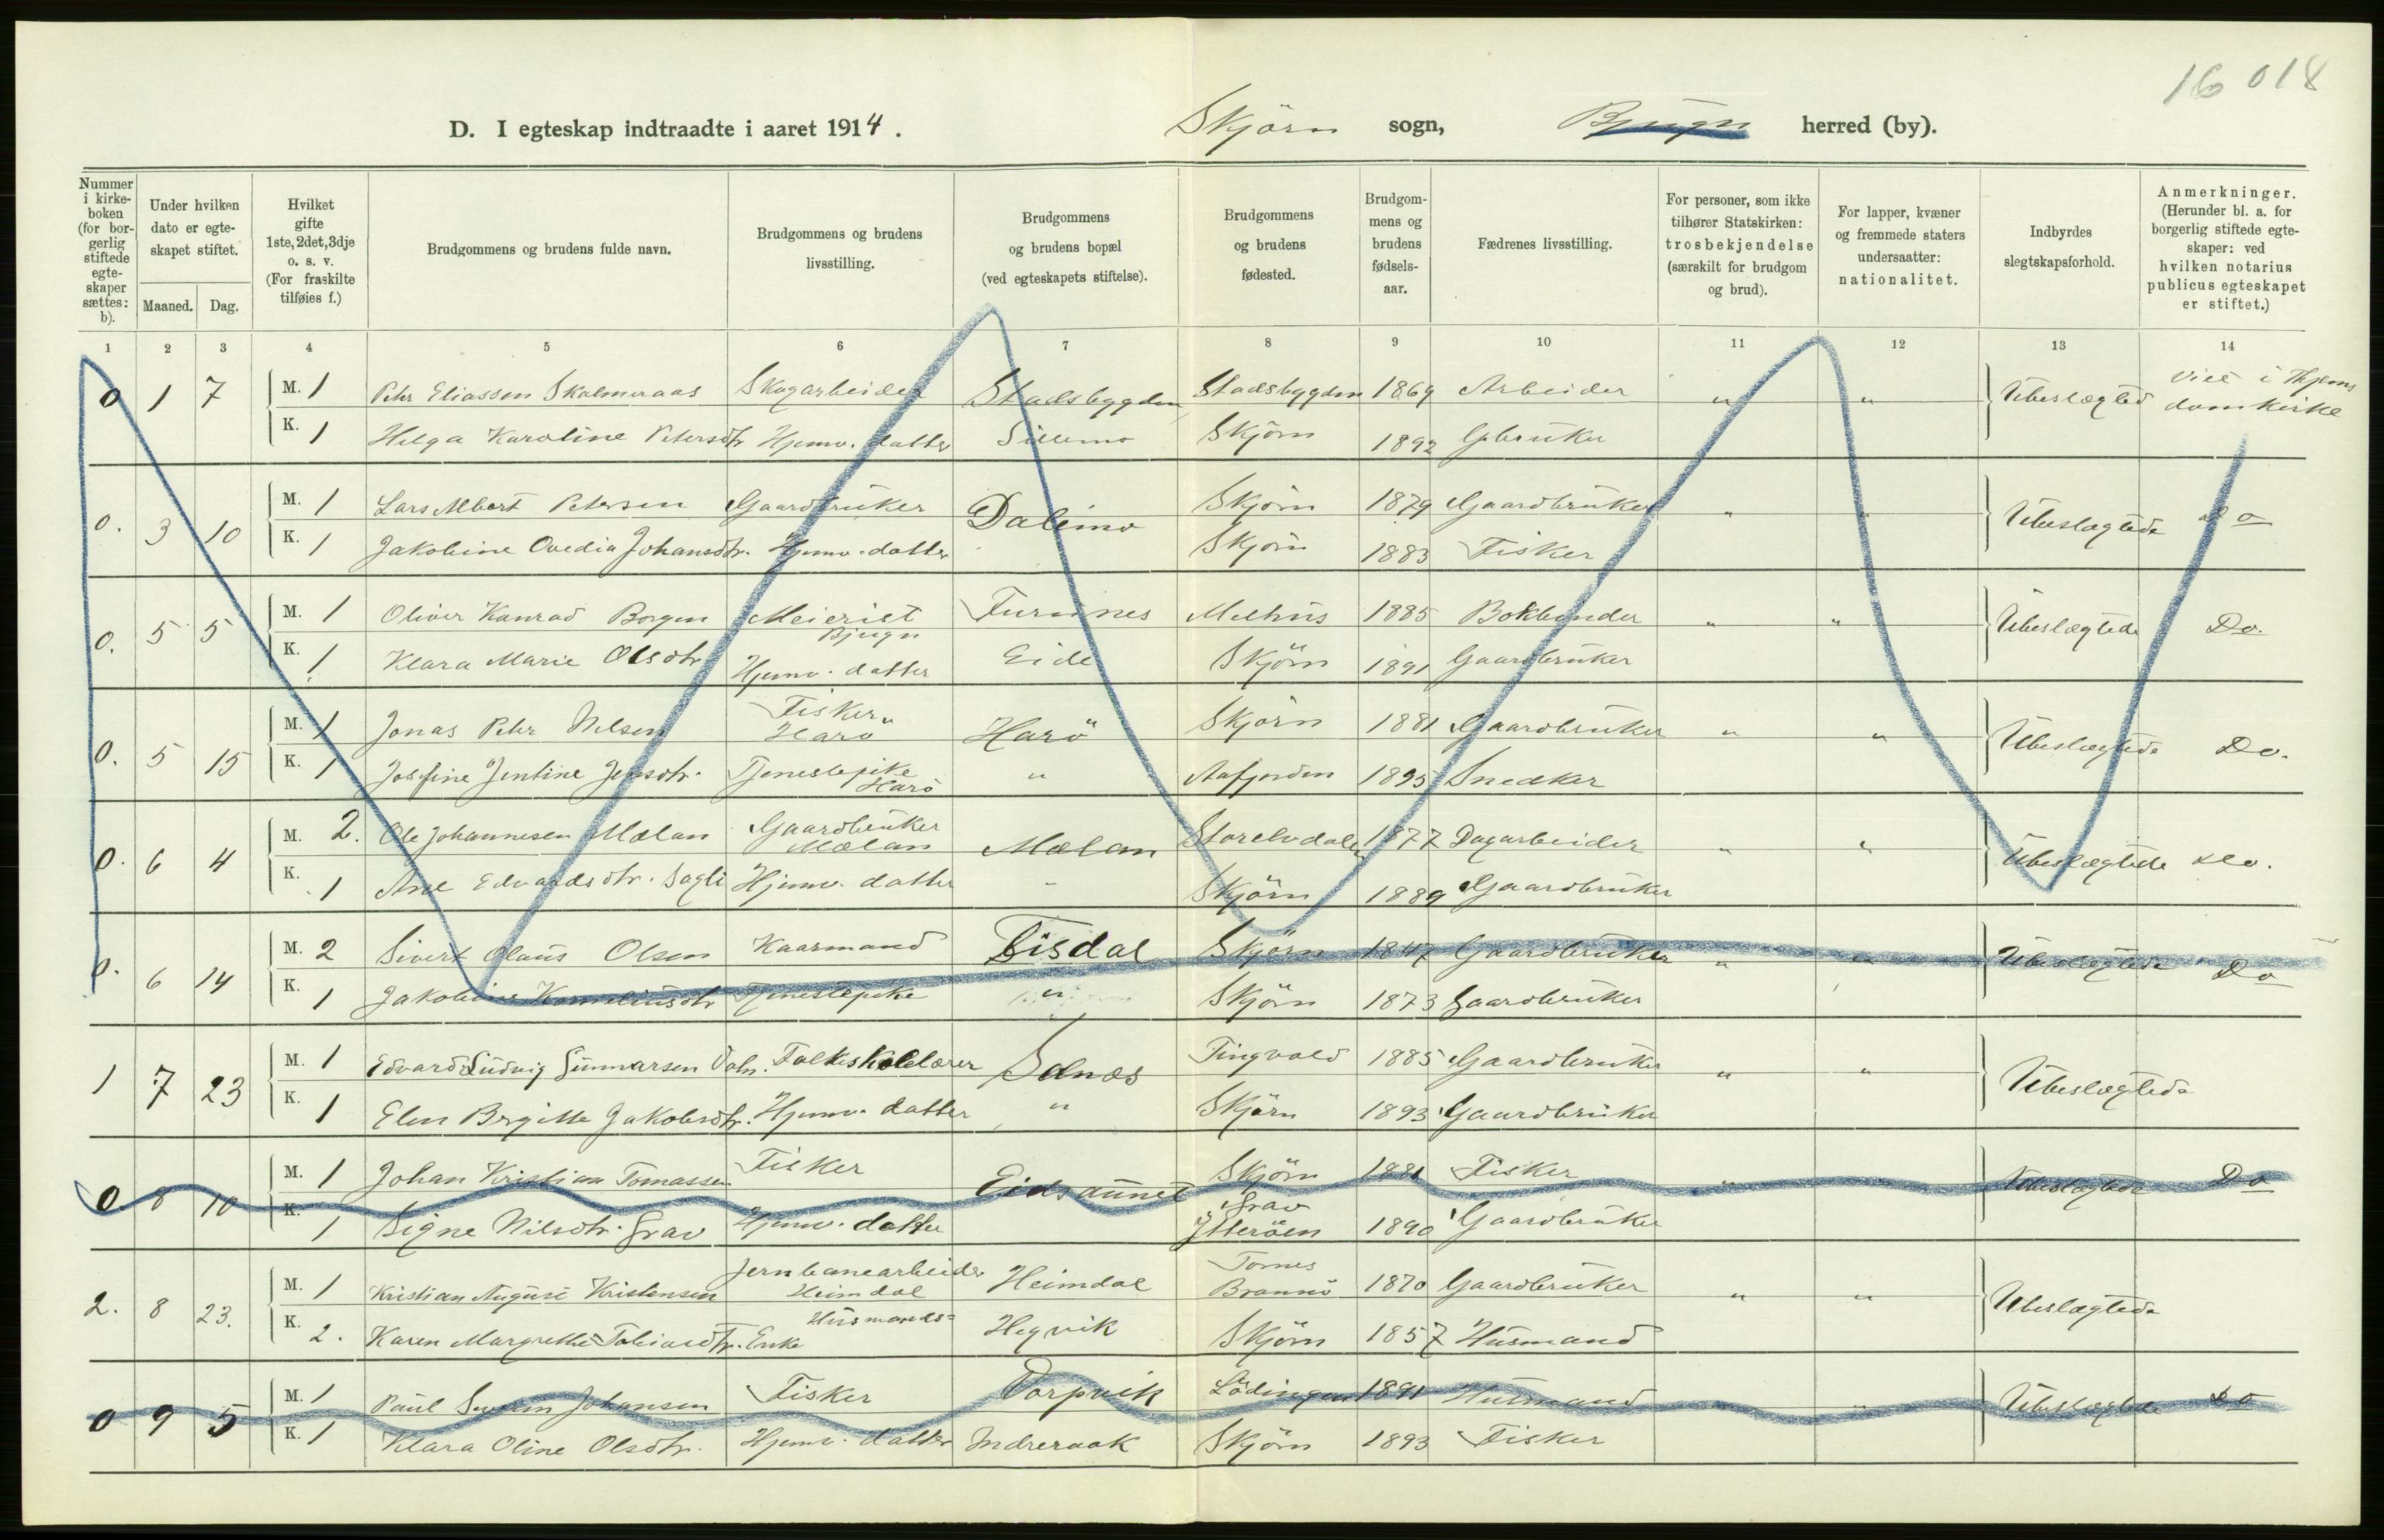 16 018
D. I egteskap indtraadte i aaret 1914. Skjörn sogn, Bjugn herred (by).
Nummer i kirkeboken (for borgerlig stiftede egteskaper sættes: b).
Under hvilken dato er egteskapet stiftet.
Maaned. Dag.
Hvilket gifte 1ste, 2det, 3dje o. s. v. (For fraskilte tilføies f.)
Brudgommens og brudens fulde navn.
Brudgommens og brudens livsstilling.
Brudgommens og brudens bopæl (ved egteskapets stiftelse).
Brudgommens og brudens fødested.
Brudgommens og brudens fødselsaar.
Fædrenes livsstilling.
For personer, som ikke tilhører Statskirken: trosbekjendelse (særskilt for brudgom og brud).
For lapper, kvæner og fremmede staters undersaatter: nationalitet.
Indbyrdes slegtskapsforhold.
Anmerkninger. (Herunder bl. a. for borgerlig stiftede egteskaper: ved hvilken notarius publicus egteskapet er stiftet.)
1 2 3 4 5 6 7 8 9 10 11 12 13 14
0 1 7 M. 1 Petr Eliassen Skalmeraas Skogarbeider Stadsbygden Stadsbygden 1869 Arbeider " " Ubeslægted Viet i Thjems domkirke
K. 1 Helga Karoline Petersdtr Hjemv. datter Skjörn 1892 Gbruker
0. 3 10 M. 1 Lars Albert Petersen Gaardbruker Dalimo Skjörn 1879 Gaardbruker " " Ubeslægtede Do
K. 1 Jakobine Ovedia Johansdtr. Hjemv. datter Skjörn 1883 Fisker
0. 5 5 M. 1 Oliver Konrad Borgen Meierist Bjugn Melhus 1885 Bokbinder " " Ubeslægtede Do.
K. 1 Klara Marie Olsdtr Hjemv. datter Eide Skjörn 1891 Gaardbruker
0. 5 15 M. 1 Jonas Petr Nilsen Fisker Harö Harö Skjörn 1881 Gaardbruker " " Ubeslægtede Do.
K. 1 Josefine Jentine Jensdtr. Tjenestepike Harö " Aafjorden 1895 Snedker
0. 6 4 M. 2. Ole Johannesen Mælan Gaardbruker Mælan Mælan Storelvdalen 1877 Dagarbeider " " Ubeslægtede do.
K. 1 Ane Edvardsdtr. Sagli Hjemv. datter " Skjörn 1889 Gaardbruker
0. 6 14 M. 2 Sivert Olaus Olsen Kaarmand Skjörn 1847 Gaardbruker " " Ubeslægtede Do
K. 1 Jakobine Korneliusdtr Tjenestepike " Skjörn 1873 Gaardbruker
1 7 23 M. 1 Edvard Ludvig Gunnarsen Folkeskolelærer Selnæs Tingvold 1885 Gaardbruker " " Ubeslægtede
K. 1 Elen Bergitte Jakobsdtr. Hjemv. datter " Skjörn 1893 Gaardbruker
0. 8 10 M. 1 Johan Kristian Tomassen Fisker Eidsaunet Skjörn 1881 Fisker " " Ubeslægtede Do
K. 1 Signe Nilsdtr. Grav Hjemv. datter Grav Ytteröen 1890 Gaardbruker
2. 8 23. M. 1 Kristian August Kristensen Jernbanearbeider Heimdal Heimdal Tornes Brönnö 1870 Gaardbruker " " Ubeslægtede
K. 2. Karen Margrethe Tobiasdtr. Husmands= Enke Hegvik Skjörn 1857 Husmand
0 9 5 M. 1 Paul Severin Johansen Fisker Torpvik Lödingen 1891 Husmand " " Ubeslægtede Do
K. 1 Klara Oline Olsdtr. Hjemv. datter Indreraak Skjörn 1893 Fisker